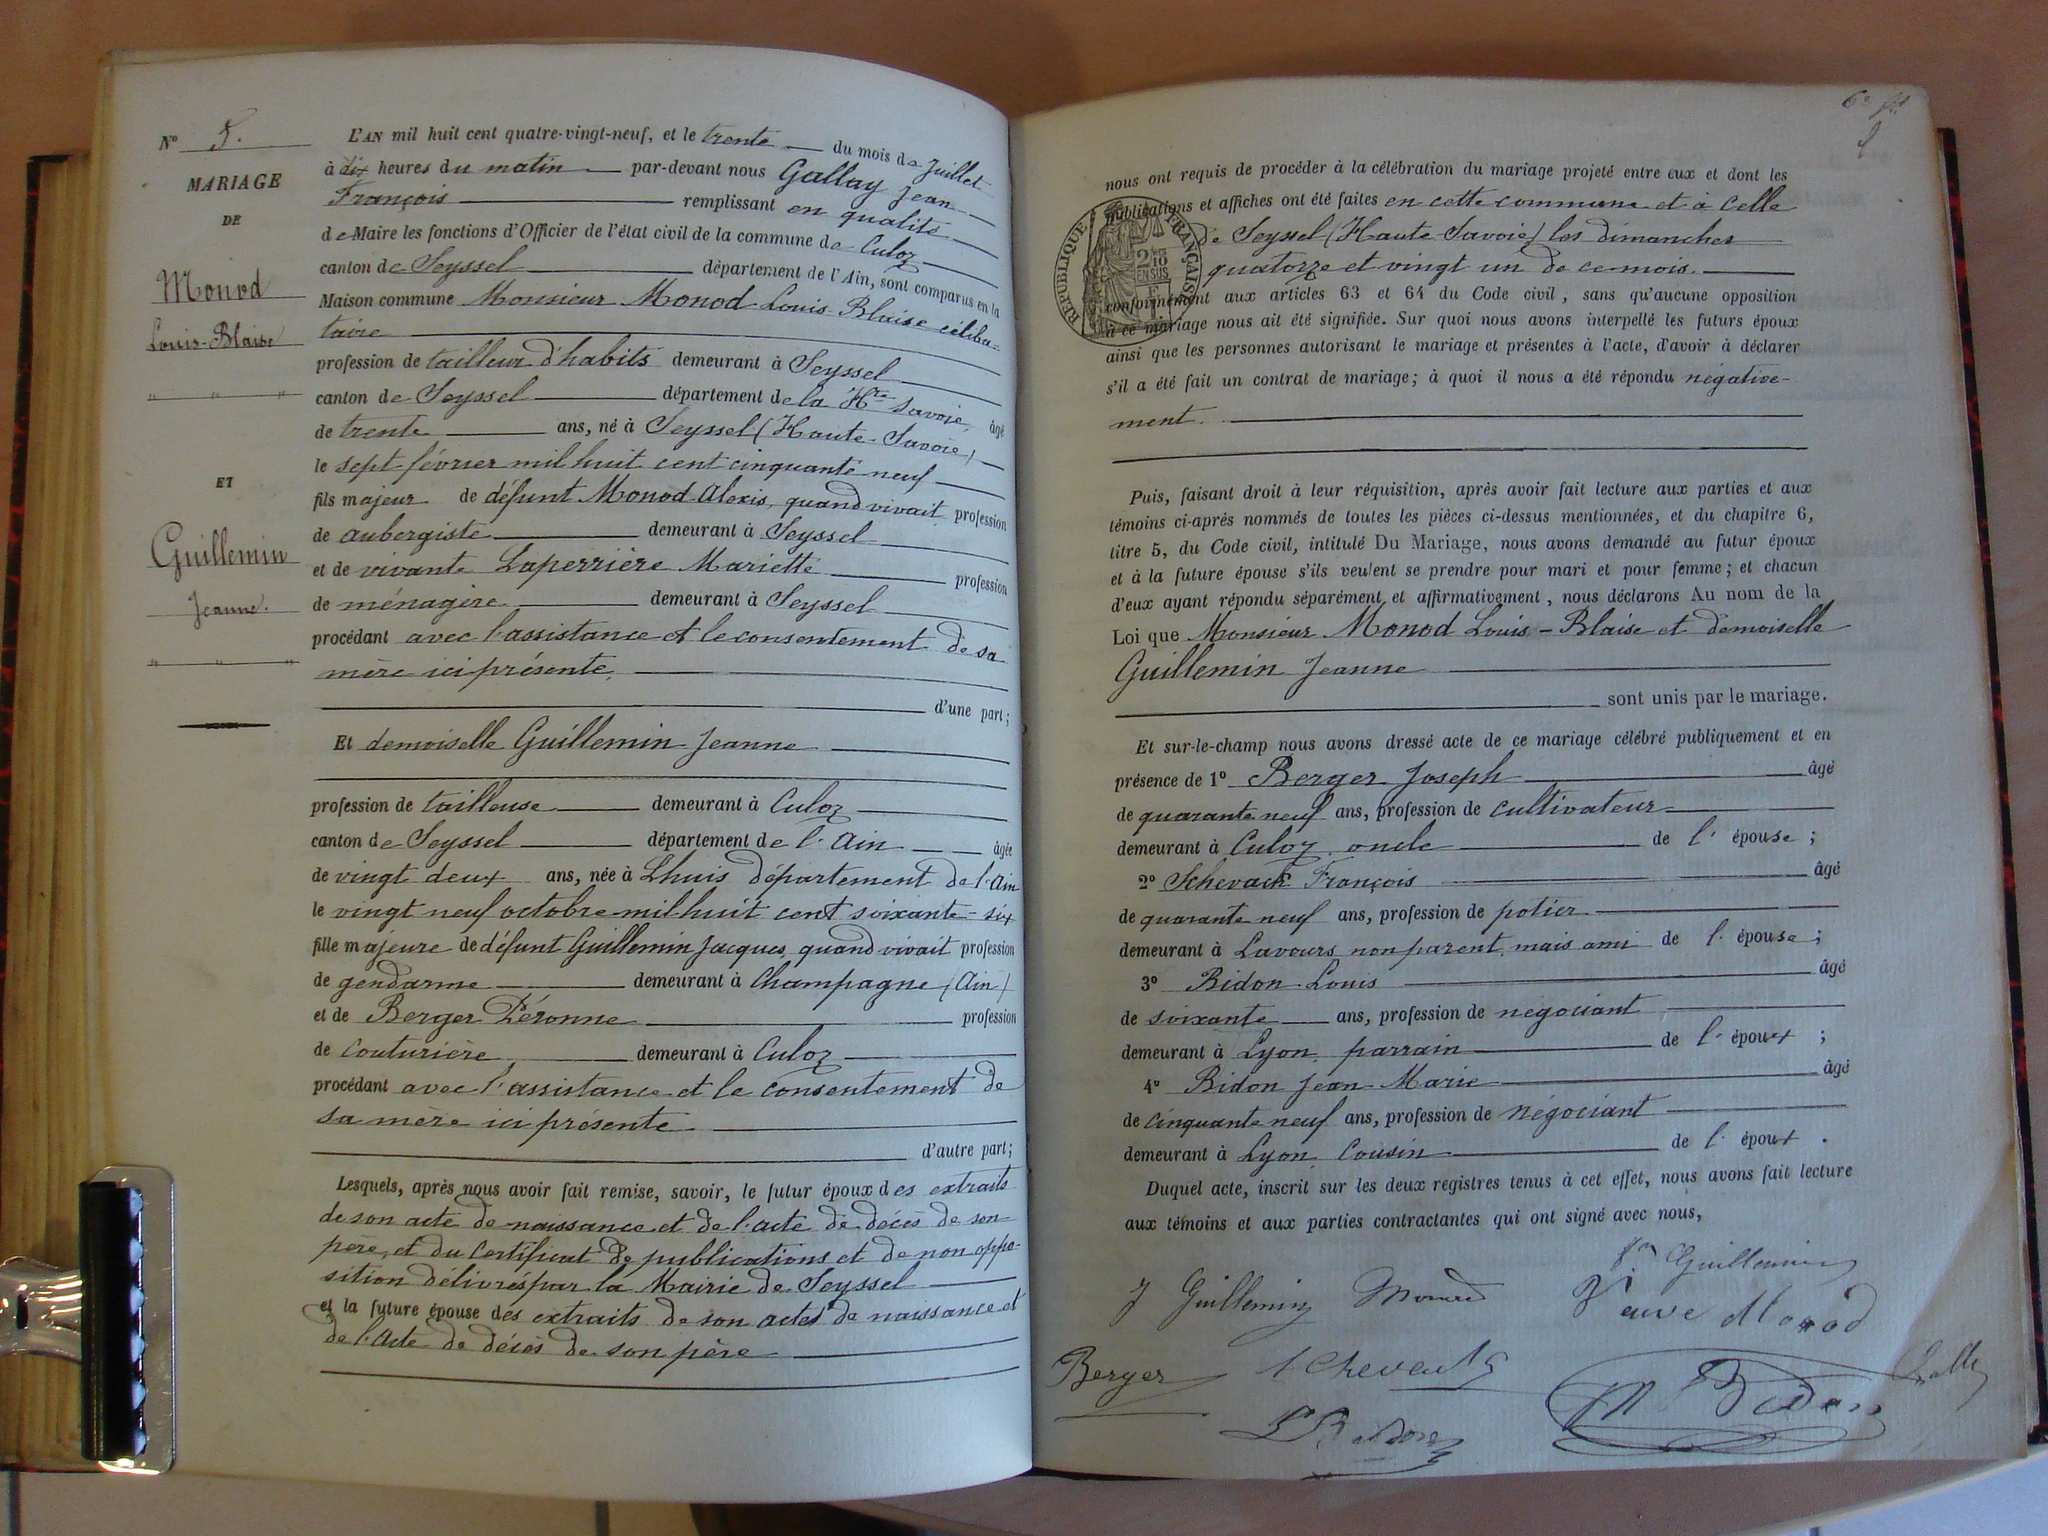 N° 5.
MARIAGE
DE
Monod
Louis-Blaise
" " "
ET
Guillemin
Jeanne.
" " "
L'AN mil huit cent quatre-vingt-neuf, et le trente du mois de Juillet
à dix heures du matin par-devant nous Gallay Jean
François remplissant en qualité
de Maire les fonctions d'Officier de l'état civil de la commune de Culoz
canton de Seyssel département de l'Ain, sont comparus en la
Maison commune Monsieur Monod Louis-Blaise céliba-
taire
profession de tailleur d'habits demeurant à Seyssel
canton de Seyssel département de la Hte Savoie, âgé
de trente ans, né à Seyssel (Haute-Savoie)
le sept février mil huit cent cinquante neuf
fils majeur de défunt Monod Alexis, quand vivait profession
de aubergiste demeurant à Seyssel
et de vivante Laperrière Mariette profession
de ménagère demeurant à Seyssel
procédant avec l'assistance et le consentement de sa
mère ici présente,
d'une part;
Et demoiselle Guillemin Jeanne
profession de tailleuse demeurant à Culoz
canton de Seyssel département de l'Ain âgée
de vingt deux ans, née à Lhuis département de l'Ain
le vingt neuf octobre mil huit cent soixante-six
fille majeure de défunt Guillemin Jacques, quand vivait profession
de gendarme demeurant à Champagne (Ain)
et de Berger Péronne profession
de couturière demeurant à Culoz
procédant avec l'assistance et le consentement de
sa mère ici présente
d'autre part;
Lesquels, après nous avoir fait remise, savoir, le futur époux des extraits
de son acte de naissance et de l'acte de décès de son
père, et du certificat de publications et de non oppo-
sition délivrés par la Mairie de Seyssel
et la future épouse des extraits de son actes de naissance et
de l'Acte de décès de son père
6e
nous ont requis de procéder à la célébration du mariage projeté entre eux et dont les
publications et affiches ont été faites en cette commune et à celle
de Seyssel (Haute Savoie) les dimanches
quatorze et vingt un de ce mois.
RÉPUBLIQUE FRANÇAISE
conformément aux articles 63 et 64 du Code civil, sans qu'aucune opposition
à ce mariage nous ait été signifiée. Sur quoi nous avons interpellé les futurs époux
ainsi que les personnes autorisant le mariage et présentes à l'acte, d'avoir à déclarer
s'il a été fait un contrat de mariage; à quoi il nous a été répondu négative-
ment.
Puis, faisant droit à leur réquisition, après avoir fait lecture aux parties et aux
témoins ci-après nommés de toutes les pièces ci-dessus mentionnées, et du chapitre 6,
titre 5, du Code civil, intitulé Du Mariage, nous avons demandé au futur époux
et à la future épouse s'ils veulent se prendre pour mari et pour femme; et chacun
d'eux ayant répondu séparément et affirmativement, nous déclarons Au nom de la
Loi que Monsieur Monod Louis-Blaise et demoiselle
Guillemin Jeanne
sont unis par le mariage.
Et sur-le-champ nous avons dressé acte de ce mariage célébré publiquement et en
présence de 1° Berger Joseph âgé
de quarante neuf ans, profession de cultivateur
demeurant à Culoz oncle de l'épouse;
2° François âgé
de quarante neuf ans, profession de potier
demeurant à Lavours non parent, mais ami de l'épouse;
3° Bidon Louis âgé
de soixante ans, profession de négociant
demeurant à Lyon, parrain de l'époux;
4° Bidon Jean Marie âgé
de cinquante neuf ans, profession de négociant
demeurant à Lyon Cousin de l'époux.
Duquel acte, inscrit sur les deux registres tenus à cet effet, nous avons fait lecture
aux témoins et aux parties contractantes qui ont signé avec nous,
Guillemin
J Guillemin Monod Veuve Monod
Berger
L Bidon M Bidon